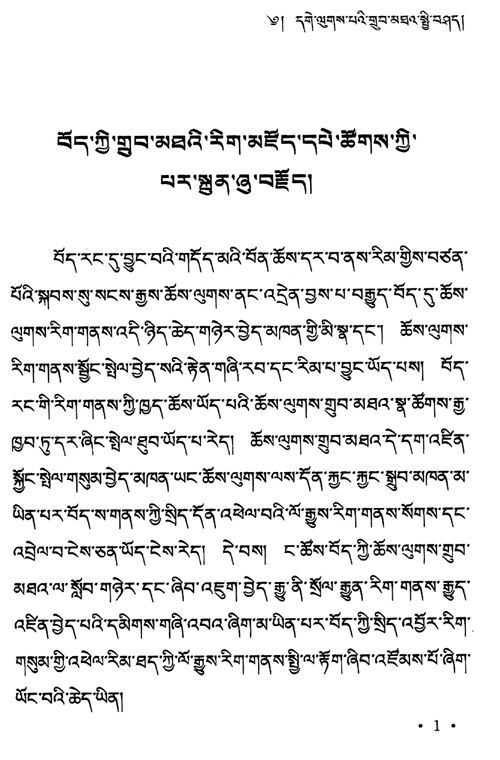 ༄། དགེ་ལུགས་པའི་གྲུབ་མཐའ་སྤྱི་བཤད།
བོད་ཀྱི་གྲུབ་མཐའི་རིག་མཛོད་དཔེ་ཚོགས་ཀྱི་
པར་སྐྲུན་ཞུ་བརྗོད།
བོད་རང་དུ་བྱུང་བའི་གདོད་མའི་བོན་ཆོས་དར་བ་ནས་རིམ་གྱིས་བཙན་
པོའི་སྐབས་སུ་སངས་རྒྱས་ཆོས་ལུགས་ནང་འདྲེན་བྱས་པ་བརྒྱུད་བོད་དུ་ཆོས་
ལུགས་རིག་གནས་འདི་ཉིད་ཆེད་གཉེར་བྱེད་མཁན་གྱི་མི་སྣ་དང་། ཆོས་ལུགས་
རིག་གནས་སྦྱོང་སྤེལ་བྱེད་སའི་རྟེན་གཞི་རབ་དང་རིམ་པ་བྱུང་ཡོད་པས། བོད་
རང་གི་རིག་གནས་ཀྱི་ཁྱད་ཆོས་ཡོད་པའི་ཆོས་ལུགས་གྲུབ་མཐའ་སྣ་ཚོགས་རྒྱ་
ཁྱབ་ཏུ་དར་ཞིང་སྤེལ་ཐུབ་ཡོད་པ་རེད། ཆོས་ལུགས་གྲུབ་མཐའ་དེ་དག་འཛིན་
སྐྱོང་སྤེལ་གསུམ་བྱེད་མཁན་ཡང་ཆོས་ལུགས་ལས་དོན་རྐྱང་རྐྱང་སྒྲུབ་མཁན་མ་
ཡིན་པར་བོད་ས་གནས་ཀྱི་སྲིད་དོན་འཕེལ་བའི་ལོ་རྒྱུས་རིག་གནས་སོགས་དང་
འབྲེལ་བ་ངེས་ཅན་ཡོད་ངེས་རེད། དེ་བས། ང་ཚོས་བོད་ཀྱི་ཆོས་ལུགས་གྲུབ་
མཐའ་ལ་སློབ་གཉེར་དང་ཞིབ་འཇུག་བྱེད་རྒྱུ་ནི་སྲོལ་རྒྱུན་རིག་གནས་རྒྱུད་
འཛིན་བྱེད་པའི་དམིགས་གཞི་འབའ་ཞིག་མ་ཡིན་པར་བོད་ཀྱི་སྲིད་འབྱོར་རིག་
གསུམ་གྱི་འཕེལ་རིམ་ཐད་ཀྱི་ལོ་རྒྱུས་རིག་གནས་སྤྱི་ལ་རྟོག་ཞིབ་འཛོམས་པོ་ཞིག་
ཡོང་བའི་ཆེད་ཡིན།
• 1 •